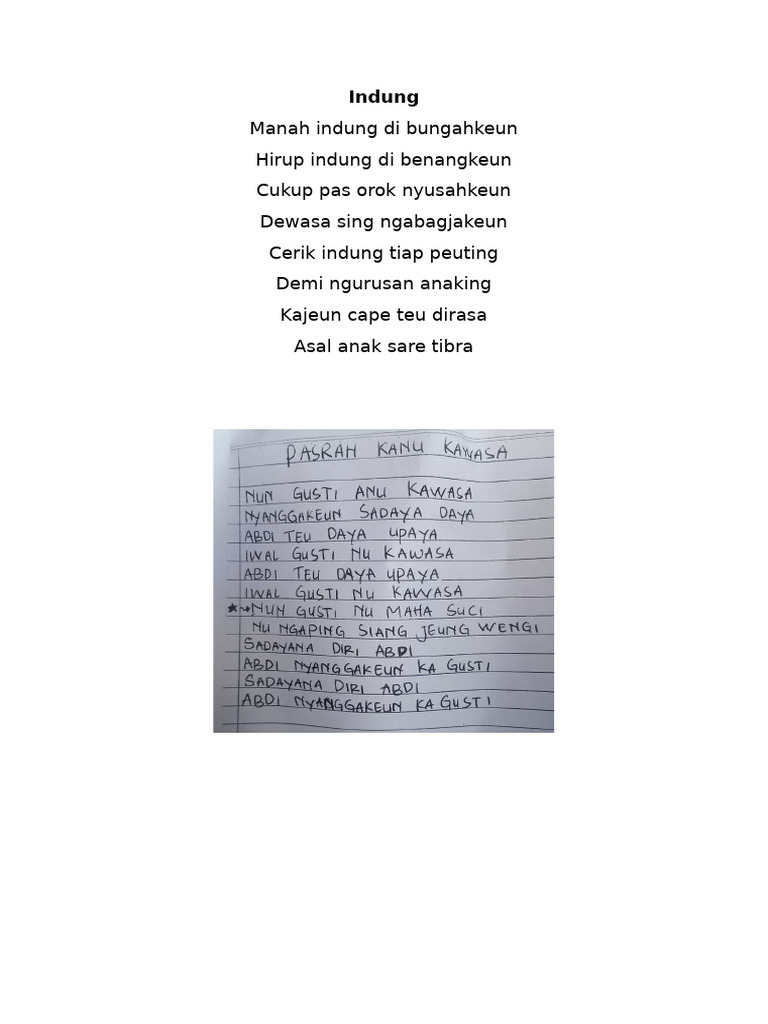 Indung
Manah indung di bungahkeun
Hirup indung di benangkeun
Cukup pas orok nyusahkeun
Dewasa sing ngabagjakeun
Cerik indung tiap peuting
Demi ngurusan anaking
Kajeun cape teu dirasa
Asal anak sare tibra
PASRAH KANU KAWASA
NUN GUSTI ANU KAWASA
NYANGGAKEUN SADAYA DAYA
ABDI TEU DAYA UPAYA
IWAL GUSTI NU KAWASA
ABDI TEU DAYA UPAYA
IWAL GUSTI NU KAWASA
★→NUN GUSTI NU MAHA SUCI
NU NGAPING SIANG JEUNG WENGI
SADAYANA DIRI ABDI
ABDI NYANGGAKEUN KA GUSTI
SADAYANA DIRI ABDI
ABDI NYANGGAKEUN KA GUSTI